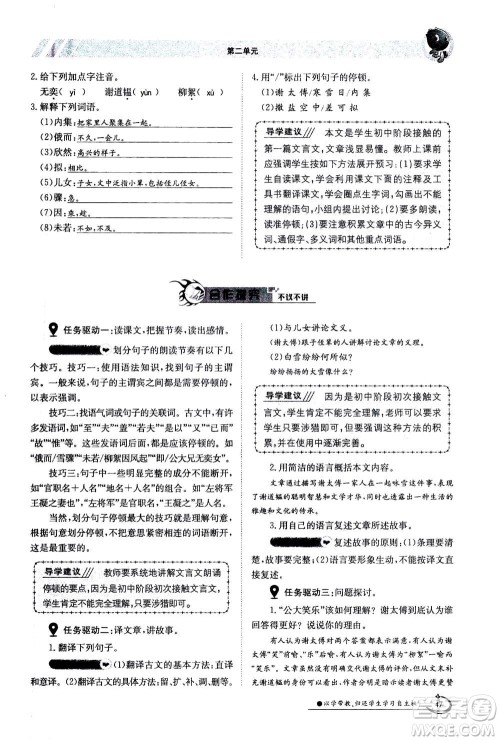 第二单元
2.给下列加点字注音。
无奕（yì） 谢道韫（yùn） 柳絮（xù）
3.解释下列词语。
(1)内集：把家里人聚集在一起。
(2)俄而：不久，一会儿。
(3)欣然：高兴的样子。
(4)拟：相比。
(5)儿女：子女，文中泛指小辈，包括侄儿侄女。
(6)骤：急。
(7)因：趁。
(8)未若：不如，不及。
4.用“/”标出下列句子的停顿。
(1)谢太傅/寒雪日/内集
(2)撒盐空中/差可拟
导学建议
本文是学生初中阶段接触的
第一篇文言文，文章浅显易懂。教师上课前
应强调学生按如下方法展开预习：(1)要求学
生自读课文，学生自主利用课下文言注释及
工具书翻译课文，圈点勾画出不会和不能理
解的语句，小组内提出讨论；(2)要注意朗读、
读准停顿；(3)要注意积累文章中的古今异义
词、通假字、多义词和其他重点词语。
合作探究 不议不讲
任务驱动一：读课文，把握节奏，读出停顿。
划分句子的朗读节奏有以下几个
技巧。技巧一：用语法知识，找到句子的主谓
宾。一般来说，句子的主谓宾之间需要有停顿，
以表示强调。
技巧二：找语气词或句子的关联词。古文中，有许
多发语词，如“至”“夫”“盖”等和关联词，如“而”“以”
“故”“惟”等。一般来说，这些发语词之后，需有停顿，
如“俄而/雪骤”“未若/柳絮因风起”“即/公大兄无奕女”。
技巧三：找能划分出明显完整意思的词语组合，
如“官职名＋人名”“地名＋人名”的组合。如“左将军
王凝之妻也”，划分为“左将军/王凝之/妻也”。
当然，划分句子停顿最重要的规则是理解句意，
根据句意，将意思紧密连接的词语划分到一起，这样
就不容易出错了。
导学建议
教师要系统地讲解文言文朗诵
停顿的要点，因为是初中阶段初次接触文言
文，学生肯定不能完全理解，只要求学生有所
涉猎即可。
任务驱动二：译文章，讲故事。
1.翻译下列句子。
(1)翻译古文的方法：直译为主，意译为辅。
(2)翻译古文的具体方法：留、扩、补、调、删、换。
(1)与儿女讲论文义。
（谢太傅）跟子侄辈的人讲解讨论文章的义理。
(2)白雪纷纷何所似？
纷纷扬扬的大雪像什么呢？
导学建议
因为是初中阶段初次接触文
言文，学生肯定不能完全理解，老师可以先
强调关键字词的意思，再让学生完整地翻译
句子。
2.用简洁的语言概括本文。
文章通过谢太傅一家人在寒雪天咏雪的故事，赞
扬了谢道韫的聪明智慧和文学才华，体现了谢太傅一家
儒雅、和乐的传统文化家风。
3.用自己的语言复述这则故事。
复述故事的原则：(1)要注意语言通
顺，故事完整；(2)语言要形象生动，不能用翻译代替
复述。
任务驱动三：问题探讨。
1.“公大笑乐”该如何理解？谢太傅更欣赏哪一
回答？说说你的理由。
有人认为谢太傅对两个答案都表示满意、高兴，于
是大“笑”而“乐”；有人认为“笑”前一喻，“乐”后一喻
（“笑乐”不连读）；有人由此推断作者赞赏谢道韫的才
气。但从文末补充交代谢道韫的身份这一细节来看，作
者赞赏谢道韫的才气，因此可推断出谢太傅更赞赏
以学带教，归还学生学习自主权